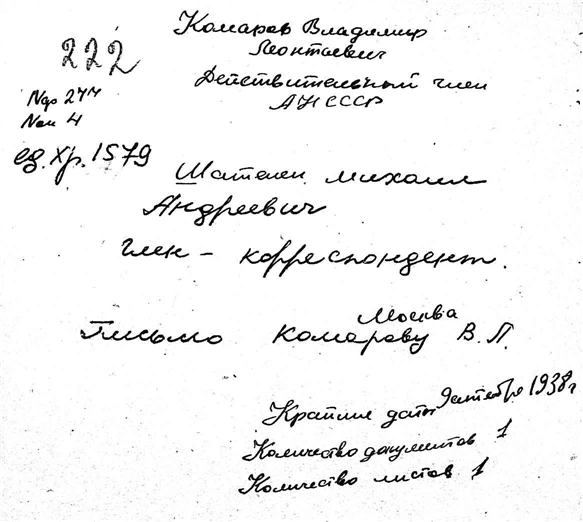 Комаров Владимир
Леонтьевич
222
Действительный член
АН СССР
№оп 4
ед. хр. 1579
Шателен Михаил
Андреевич
член - корреспондент.
Москва
Письмо Комарову В. Л.
Крайние даты 1938г
Количество документов 1
Количество листов 1